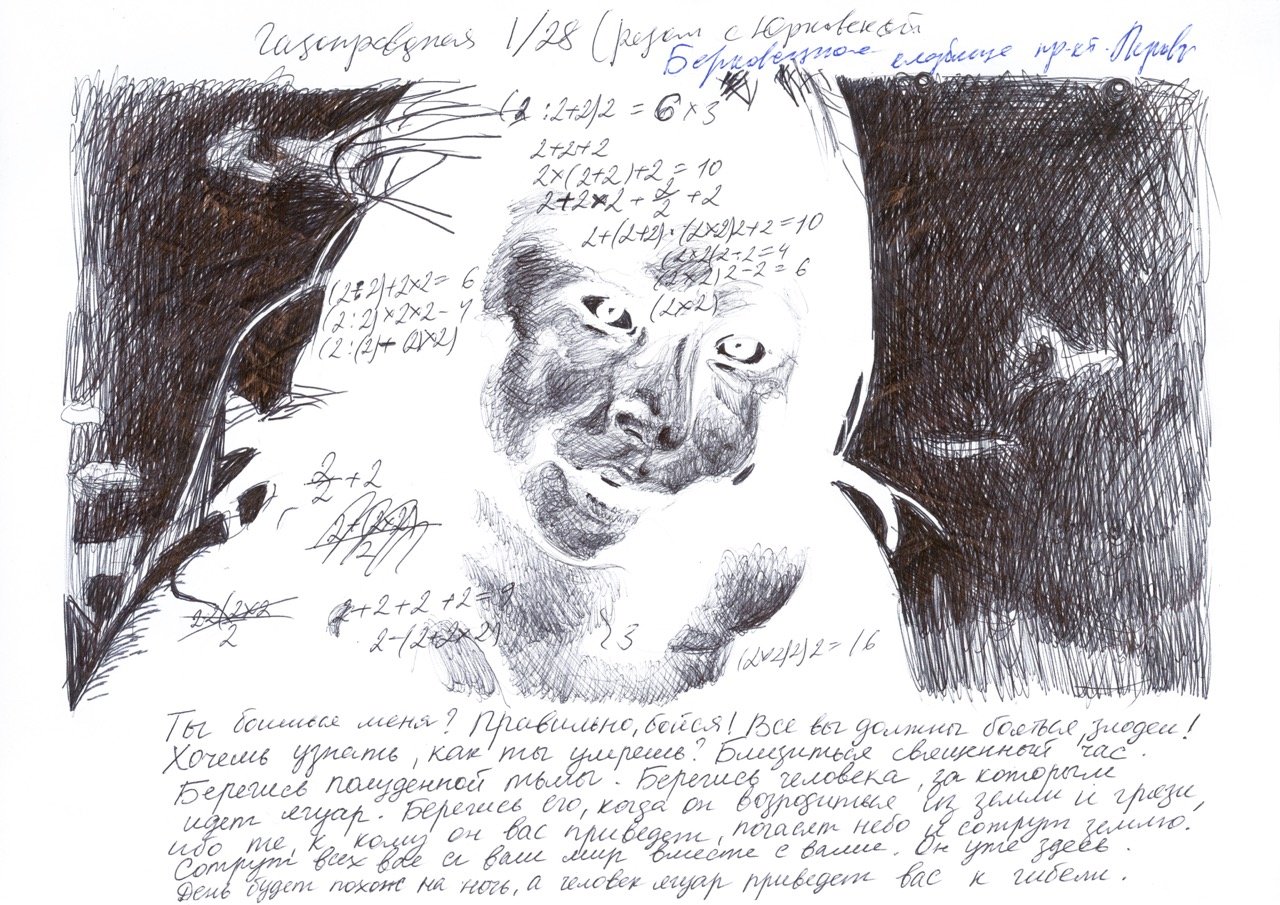 Газопроводная 1/28 (рядом с Юрковской
Берковецкое кладбище пр-кт
(2 :2+2)2 = 6×3
2+2+2
2×(2+2)+2 = 10
2+2×2 + 2/2 + 2
2+(2+2)·(2×2)2+2=10
(2×2)2÷2=4
(2×2)2-2 = 6
(2×2)
(2÷2)+2×2= 6
(2:2)×2×2- 4
(2:(2)+(2)×2)
2/2 + 2
2+(2×2)/2
22(2×2/2
2+2+2 +2=
2-(2+2×2)
3
(2×2)2)2= 16
Ты боишься меня? Правильно, бойся! Все вы должны бояться, злодеи!
Хочешь узнать, как ты умрешь? Близиться священный час.
Берегись полуденной тьмы. Берегись человека, за которым
идет ягуар. Берегись его, когда он возродиться из земли и грязи,
ибо те, к кому он вас приведет, погасят небо и сотрут землю.
Сотрут всех вас и ваш мир вместе с вами. Он уже здесь.
День будет похож на ночь, а человек ягуар приведет вас к гибели.